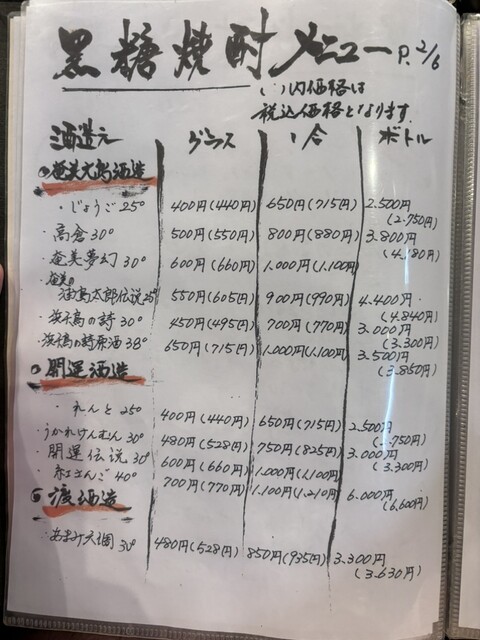 黒糖焼酎メニュー P.2/6
( )内価格は
税込価格となります。
酒造元 グラス 1合 ボトル
奄美大島酒造
・じょうご25° 400円(440円) 650円(715円) 2.500円(2.750円)
・高倉30° 500円(550円) 800円(880円) 3.800円(4.180円)
・奄美夢幻30° 600円(660円) 1.000円(1.100円)
・奄美の浦島太郎伝説25° 550円(605円) 900円(990円) 4.400円(4.840円)
・浜千鳥の詩30° 450円(495円) 700円(770円) 3.000円(3.300円)
・浜千鳥の詩原酒38° 650円(715円) 1.000円(1.100円) 3.500円(3.850円)
開運酒造
・れんと25° 400円(440円) 650円(715円) 2.500円(2.750円)
・うかれけんむん30° 480円(528円) 750円(825円) 3.000円(3.300円)
・開運伝説30° 600円(660円) 1.000円(1.100円)
・紅さんご40° 700円(770円) 1.100円(1.210円) 6.000円(6.600円)
渡酒造
・あまみ六調30° 480円(528円) 850円(935円) 3.300円(3.630円)